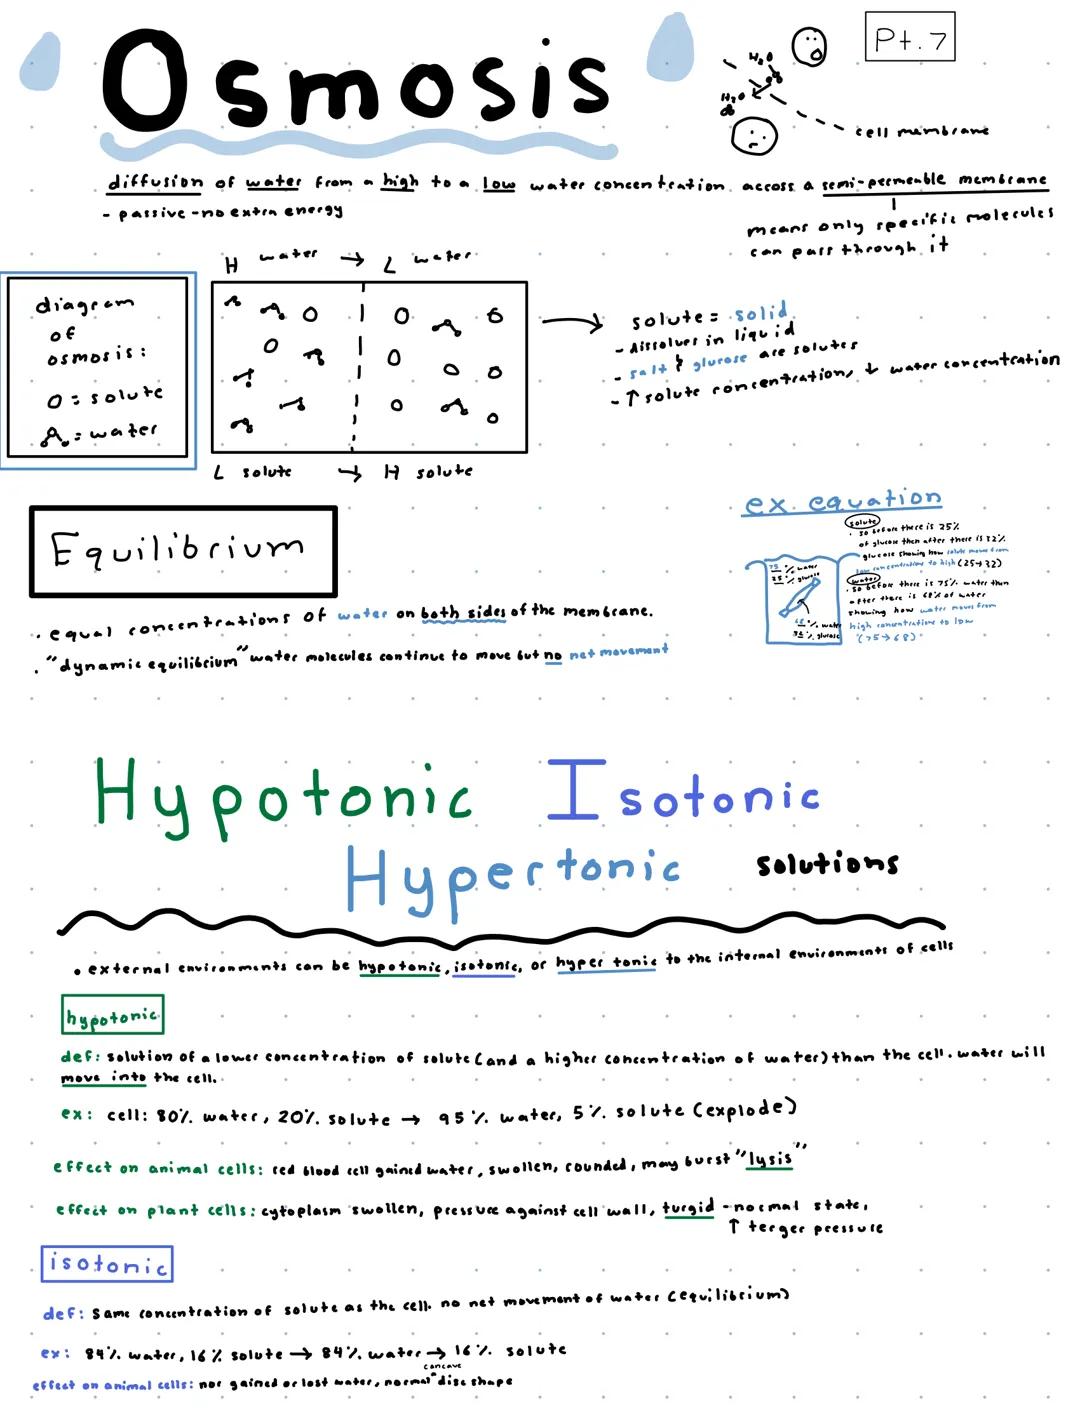 Osmosis
Pt. 7
H₂O
H₂O
cell membrane
diffusion of water from a high to a low water concentration across a semi-permeable membrane
- passive - no extra energy
means only specific molecules
can pass through it
H water → L water
diagram
of
osmosis:
O = solute
= water
L solute → H solute
solute = solid
- dissolves in liquid
- salt & glucose are solutes
- ↑ solute concentration, ↓ water concentration
Equilibrium
· equal concentrations of water on both sides of the membrane.
· "dynamic equilibrium" water molecules continue to move but no net movement
ex. equation
75 % water
25 % glucose
68 % water
32 % glucose
solute
· so before there is 25%
of glucose then after there is 32%
glucose showing how solute moves from
low concentration to high (25→32)
water
· so before there is 75% water then
after there is 68% of water
showing how water moves from
high concentrations to low
(75→68)
Hypotonic Isotonic
Hypertonic solutions
• external environments can be hypotonic, isotonic, or hyper tonic to the internal environments of cells
hypotonic
def: solution of a lower concentration of solute (and a higher concentration of water) than the cell. water will
move into the cell.
ex: cell: 80% water, 20% solute → 95% water, 5% solute (explode)
effect on animal cells: red blood cell gained water, swollen, rounded, may burst "lysis"
effect on plant cells: cytoplasm swollen, pressure against cell wall, turgid - normal state,
↑ terger pressure
isotonic
def: same concentration of solute as the cell. no net movement of water (equilibrium)
ex: 84% water, 16% solute → 84% water → 16% solute
effect on animal cells: nor gained or lost water, normal ^concave disc shape